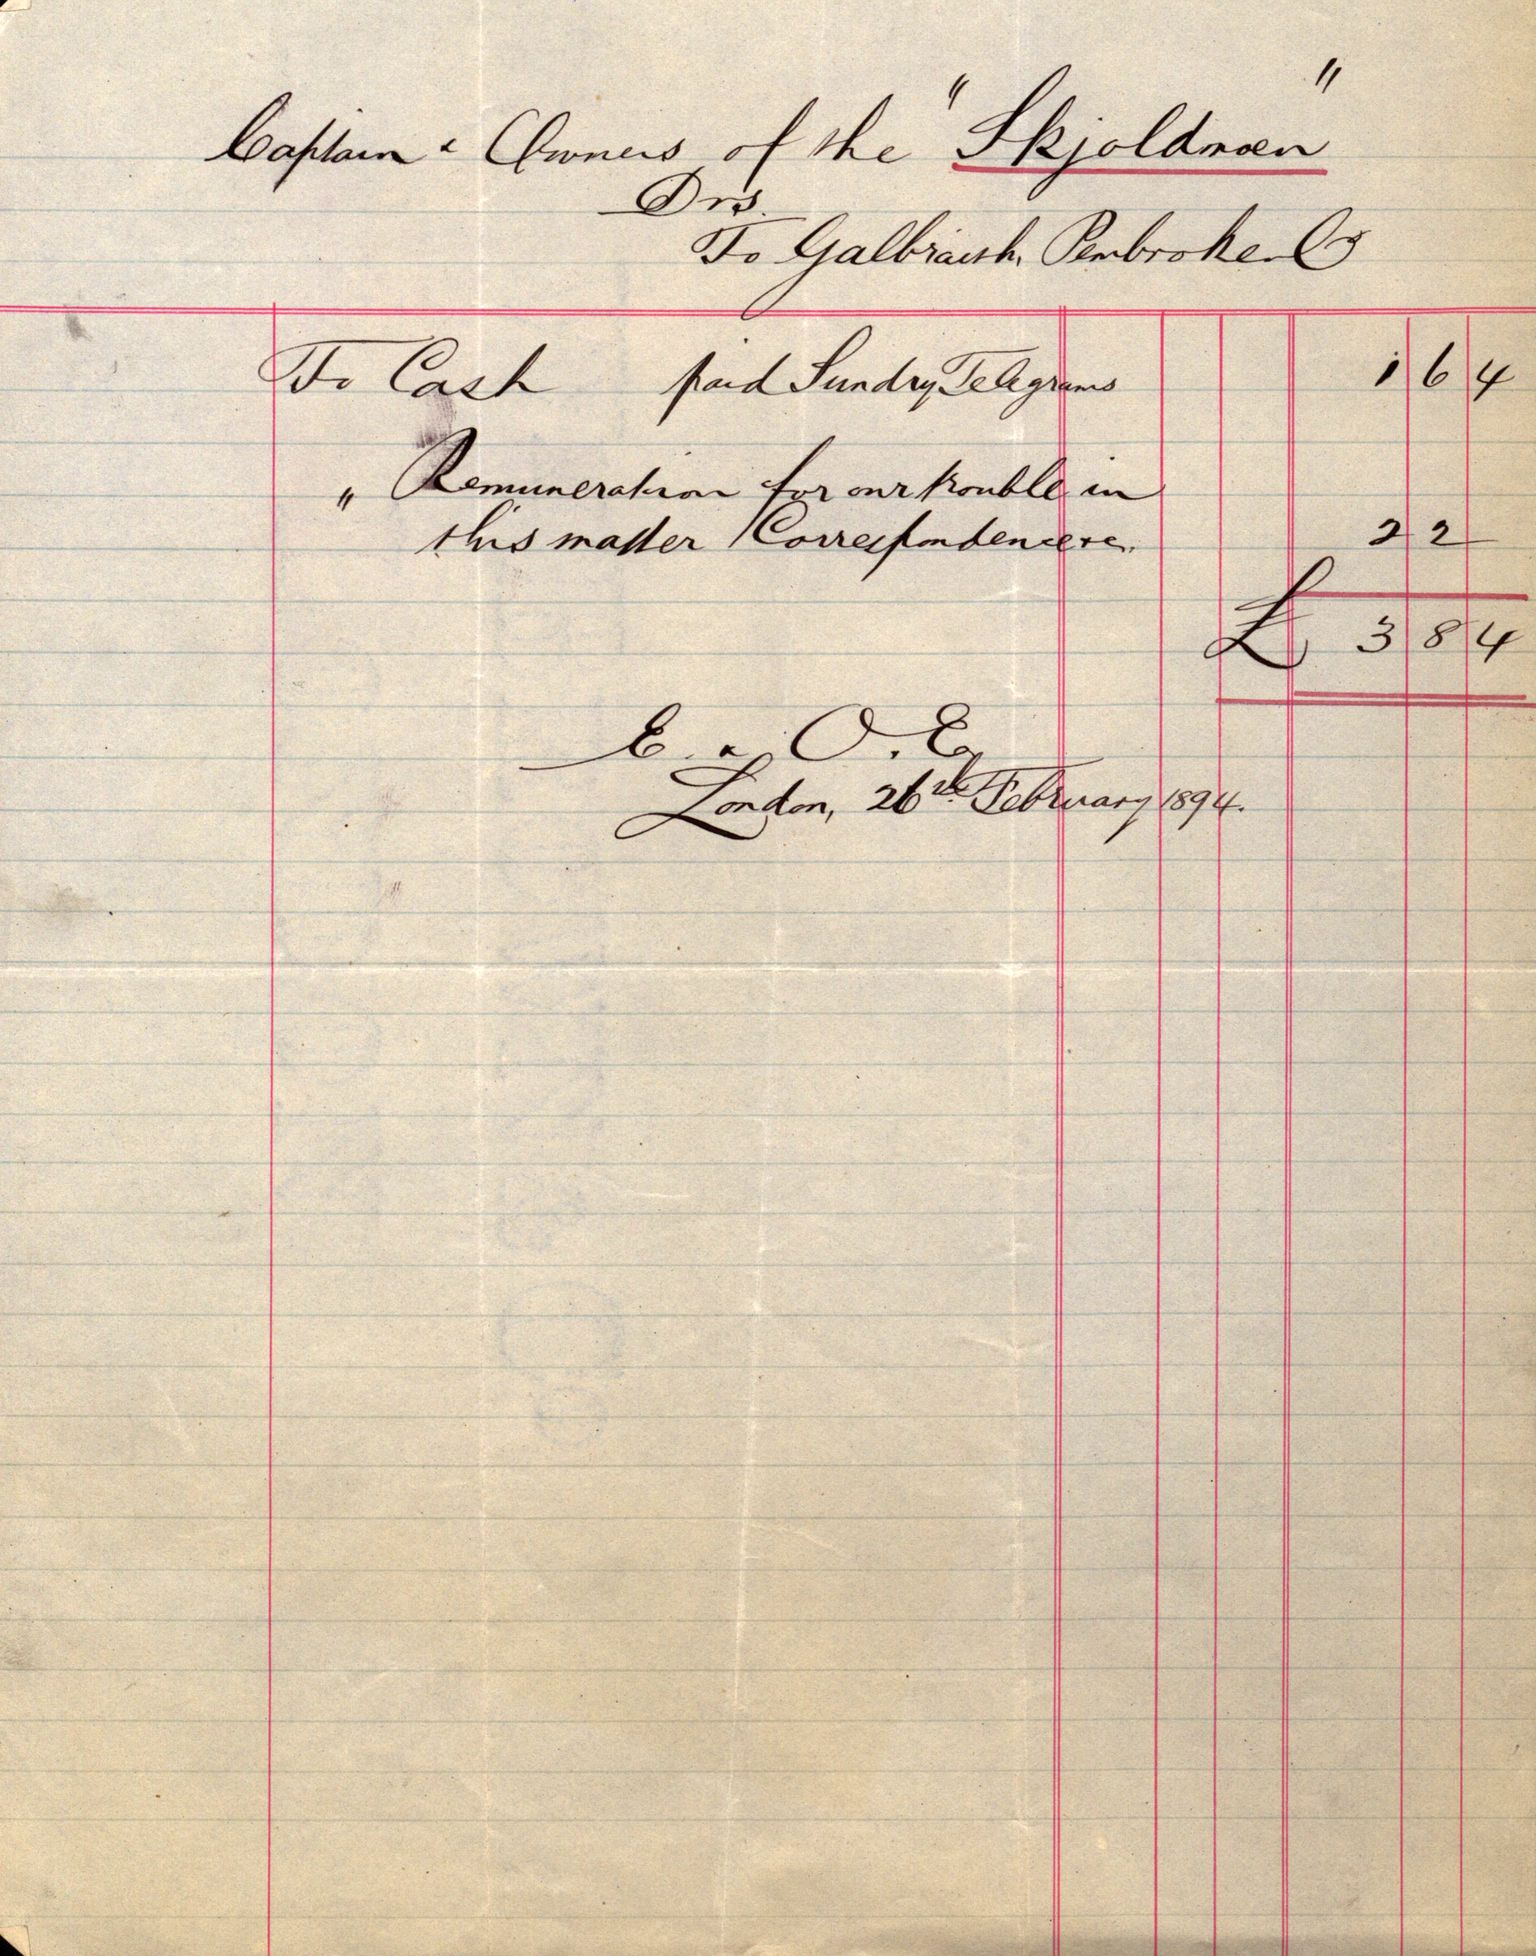 Captain & Owners of the "Skjoldmæn"
Drs.
To Galbraith, Pembroke & Co
To Cash paid Sundry Telegrams 1 6 4
" Remuneration for our trouble in
this matter / Correspondence &c. 2 2
£ 3 8 4
E. & O. E.
London, 26th February 1894.